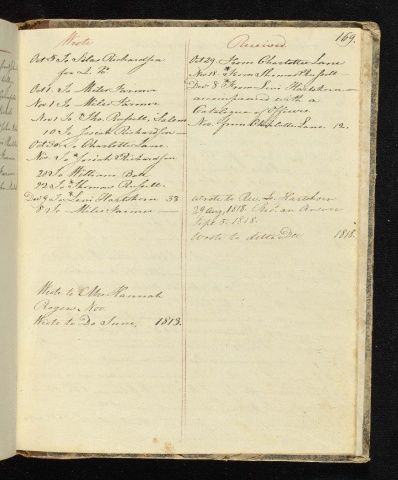 169.
Wrote
Oct 5 To Silas Richardson
for S. R
Oct 1. To Miles Farmer
Nov 1 To Miles Farmer
Nov 1 To Tho. Russell, Salem
10 To Josiah Richardson
Oct 30 To Charlotte Lane
Nov. To Josiah Richardson
20 To William Dal
22 To Thomas Russell
Dec 9 To Levi Hartshorn 33
8 To Miles Farmer
Wrote to Mrs Hannah
Rogers Nov.
Wrote to Do June, 1818.
Received
Oct 29 From Charlotte Lane
Nov 18 From Thomas Russell
Dec 8 From Levi Hartshorn
accompanied with a
Catalogue of Officers
Nov. From Charlotte Lane 12.
Wrote to Rev. L. Hartshorn
29 Aug. 1818. Rec. an Answer
Sept 5. 1818.
Wrote to ditto Dec 1818.